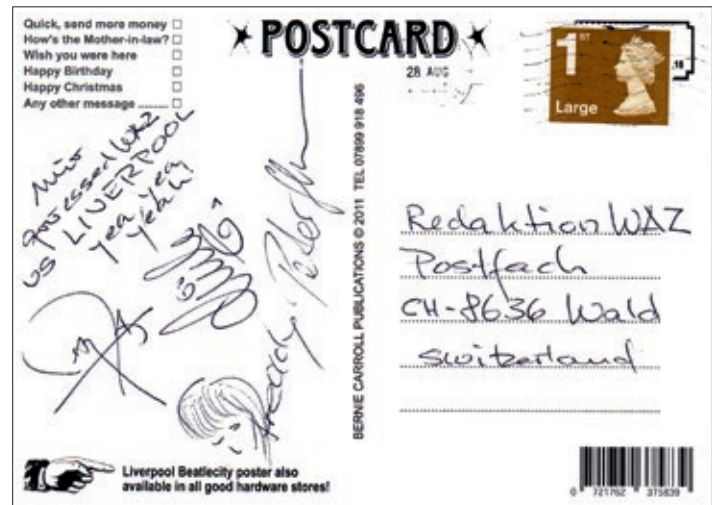 Quick, send more money
How's the Mother-in-law?
Wish you were here
Happy Birthday
Happy Christmas
Any other message ..........
POSTCARD
28 AUG
1ST
Large
us LIVERPOOL
yea yea
yeah!
BERNIE CARROLL PUBLICATIONS © 2011 TEL 07899 918 496
Redaktion WAZ
Postfach
CH-8636 Wald
Switzerland
Liverpool Beatlecity poster also
available in all good hardware stores!
0 721762 375839